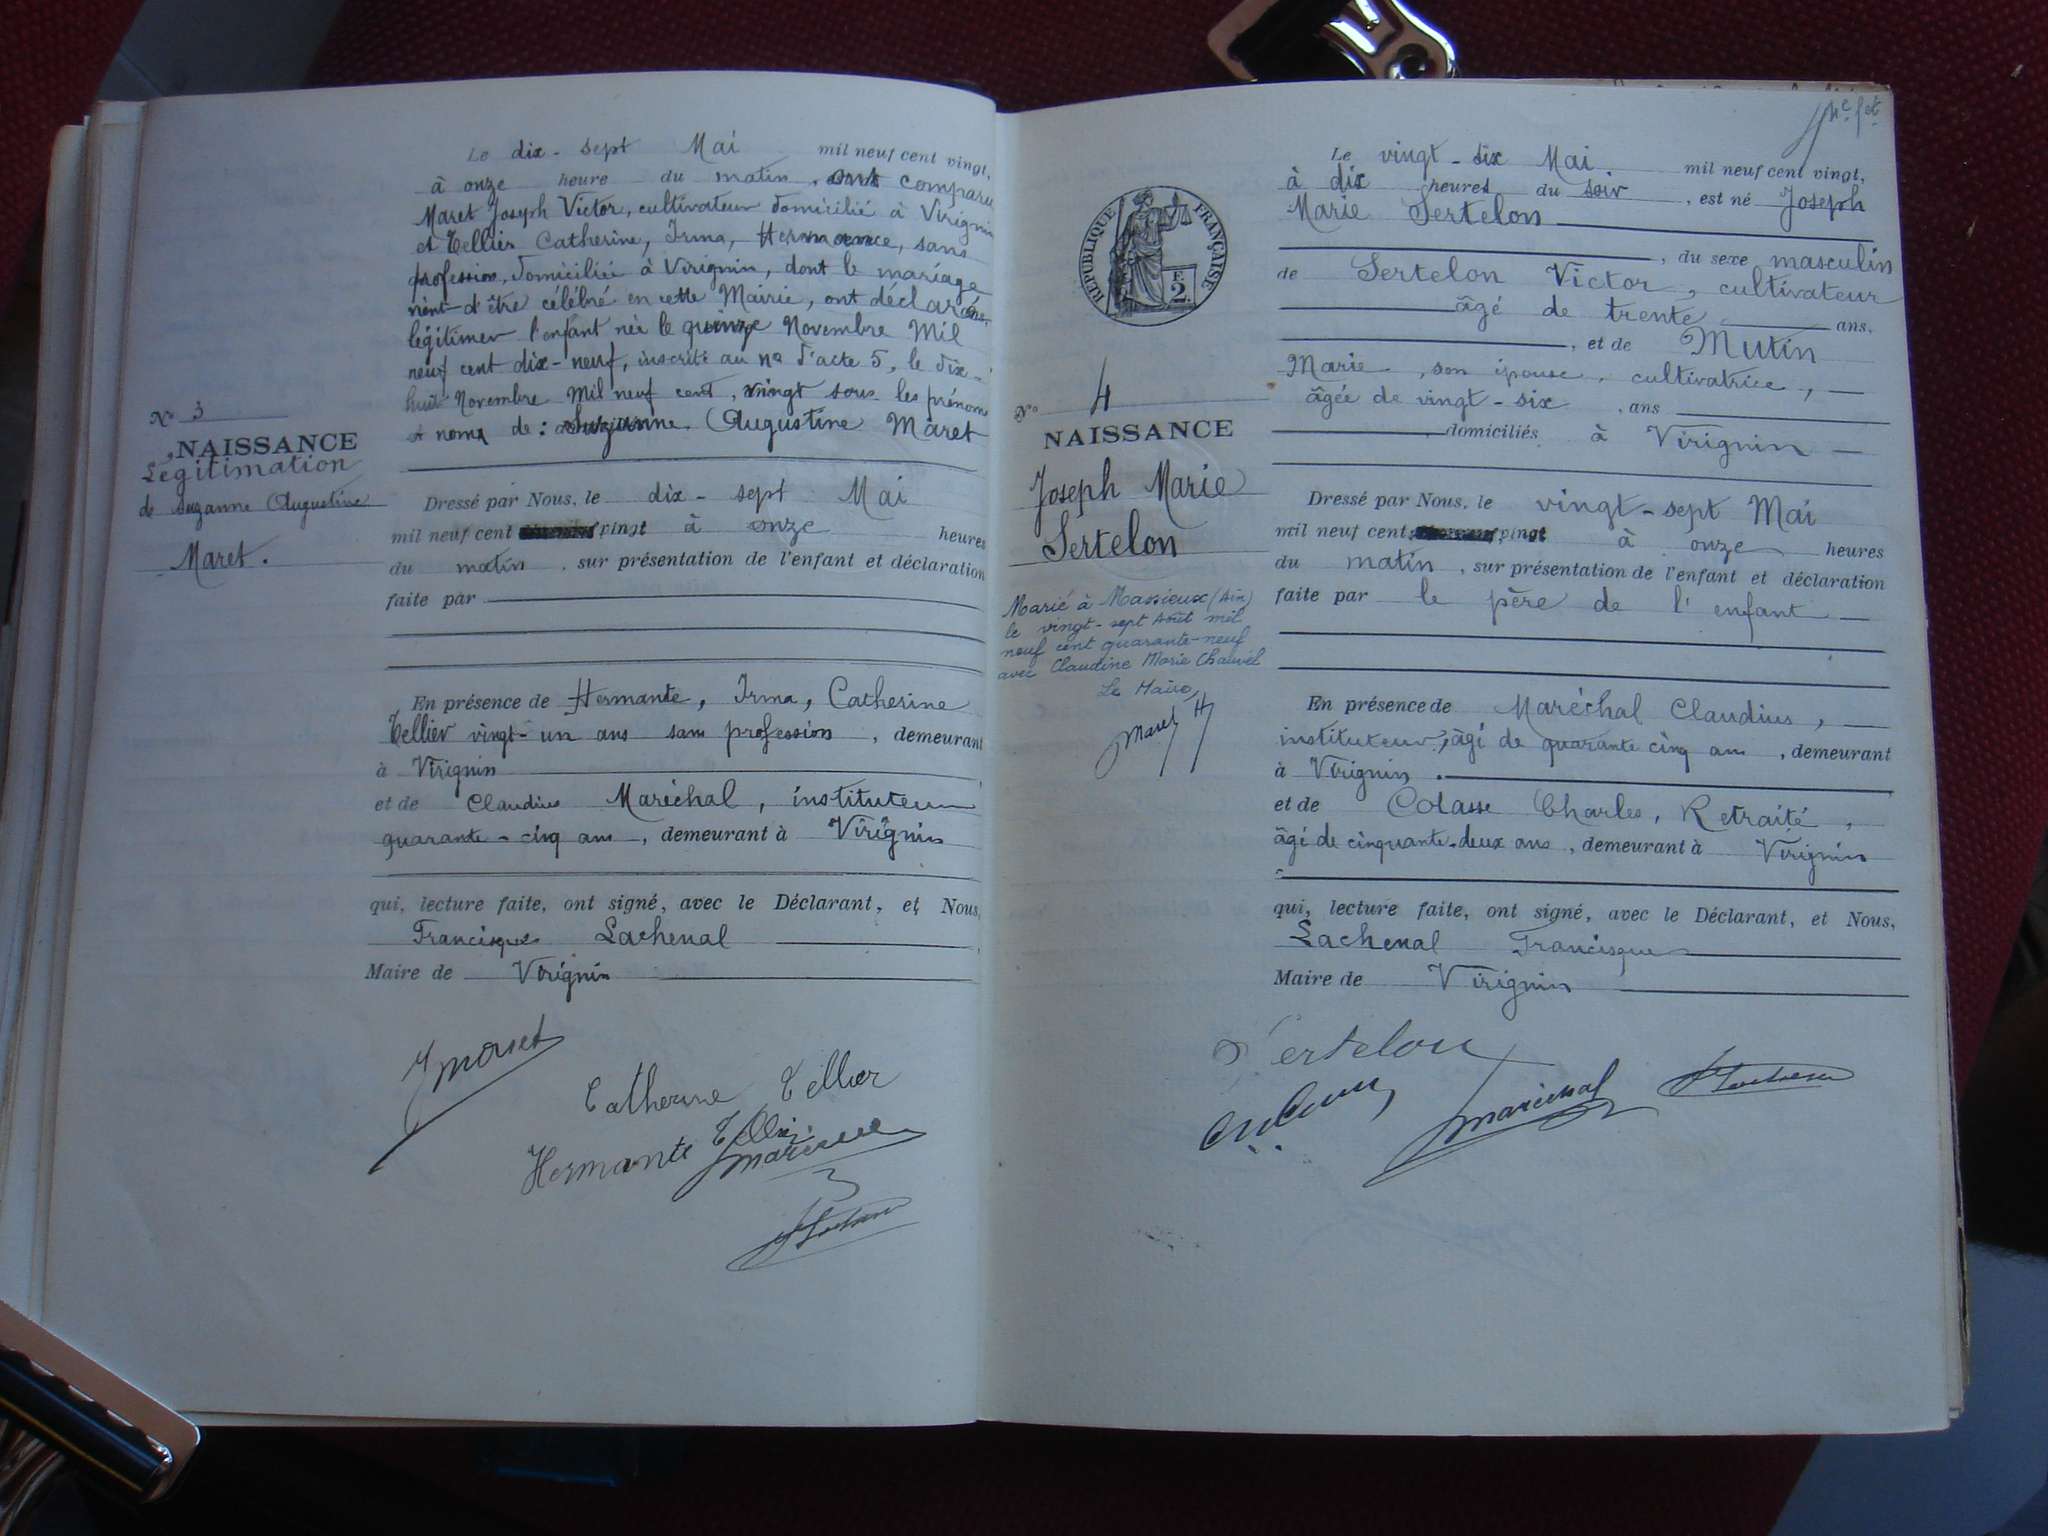 N° 3
NAISSANCE
Légitimation
de Suzanne Augustine
Maret.
Le dix-sept Mai mil neuf cent vingt,
à onze heure du matin, ont comparu
Maret Joseph Victor, cultivateur domicilié à Virignin
et Tellier Catherine, Irma, Hermance, sans
profession, domiciliée à Virignin, dont le mariage
vient d'être célébré en cette Mairie, ont déclaré
légitimer l'enfant née le quinze Novembre Mil
neuf cent dix-neuf, inscrite au n° d'acte 5, le dix-
huit Novembre Mil neuf cent, vingt sous les prénoms
et noms de: Suzanne Augustine Maret
Dressé par Nous, le dix-sept Mai
mil neuf cent vingt à onze heures
du matin, sur présentation de l'enfant et déclaration
faite par
En présence de Hermante, Irma, Catherine
Tellier vingt-un ans sans profession, demeurant
à Virignin
et de Claudius Maréchal, instituteur
quarante-cinq ans, demeurant à Virignin
qui, lecture faite, ont signé, avec le Déclarant, et Nous,
Francisque Lachenal
Maire de Virignin
J Maret
Catherine Tellier
Hermante Tellier
Maréchal
F Lachenal
REPUBLIQUE FRANÇAISE
F.
2
N° 4
NAISSANCE
Joseph Marie
Sertelon
Marié à Massieux (Ain)
le vingt-sept Août mil
neuf cent quarante-neuf
avec Claudine Marie Chauvel
Le Maire,
Maret H
Le vingt-six Mai mil neuf cent vingt,
à dix heures du soir, est né Joseph
Marie Sertelon
, du sexe masculin
de Sertelon Victor, cultivateur
âgé de trente ans,
, et de Mutin
Marie, son épouse, cultivatrice,
âgée de vingt-six ans
domiciliés à Virignin
Dressé par Nous, le vingt-sept Mai
mil neuf cent vingt à onze heures
du matin, sur présentation de l'enfant et déclaration
faite par le père de l'enfant
En présence de Maréchal Claudius,
instituteur, âgé de quarante cinq ans, demeurant
à Virignin.
et de Colasse Charles, Retraité,
âgé de cinquante-deux ans, demeurant à Virignin
qui, lecture faite, ont signé, avec le Déclarant, et Nous,
Lachenal Francisque
Maire de Virignin
Sertelon
Maréchal
F Lachenal